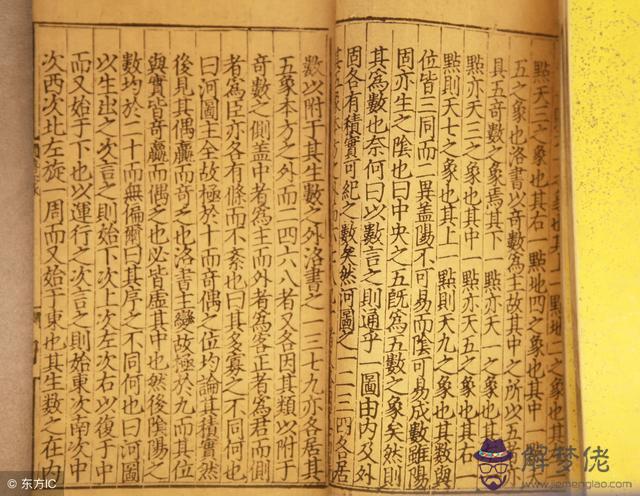 點天三之象也其右一點地四之象也其中一點
五之象也洛書以奇數為主故其中之所以五者
具五奇數之象焉其下一點亦天一之象也其左一
點亦天三之象也其中一點亦天五之象也其右一
點則天七之象也其上一點則天九之象也其數與
位皆三同而二異蓋陽不可易而陰可易成數雖陽
固亦生之陰也曰中央之五既為五數之象矣然則
其為數也奈何曰以數言之則通乎一圖由內及外
固各有積實可紀之數矣然河圖之一二三四各居
數以附于其生數之外洛書之一三七九亦各居其
五象本方之外而二四六八者又各因其類以附于
奇數之側蓋中者為主而外者為客正者為君而側
者為臣亦各有條而不紊也曰其多寡之不同何也
曰河圖主全故極於十而奇偶之位均論其積實然
後見其偶贏而奇乏也洛書主變故極於九而其位
與實皆奇贏而偶乏也必皆虛其中也然後陰陽之
數均於二十而無偏爾曰其序之不同何也曰河圖
以生出之次言之則始下次上次左次右以復于中
而又始于下也以運行之次言之則始東次南次中
次西次北左旋一周而又始于東也其生數之在內
© 东方IC
解梦佬
www.jiemenglao.com